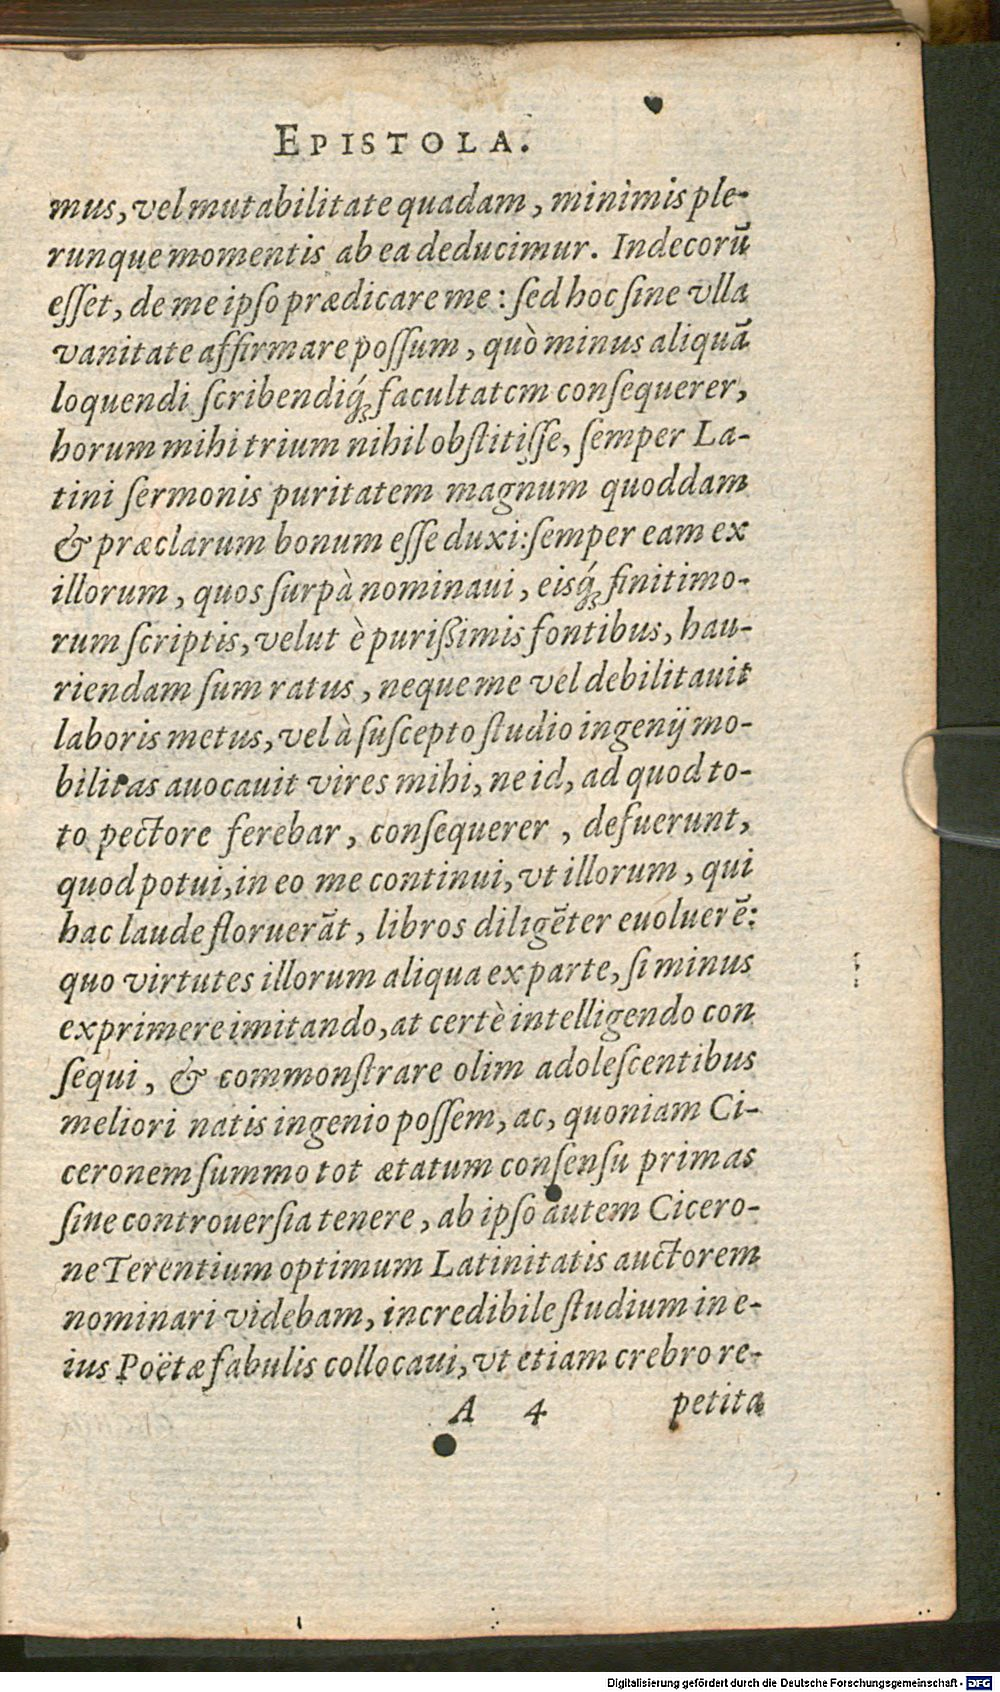 EPISTOLA.
mus, vel mutabilitate quadam, minimis ple-
runque momentis ab ea deducimur. Indecorū
eſſet, de me ipſo prædicare me: ſed hoc ſine vlla
vanitate affirmare poſſum, quò minus aliquā
loquendi ſcribendiq́ꝫ facultatem conſequerer,
horum mihi trium nihil obſtitiſſe, ſemper La-
tini ſermonis puritatem magnum quoddam
& præclarum bonum eſſe duxi: ſemper eam ex
illorum, quos ſurpà nominaui, eisq́ꝫ finitimo-
rum ſcriptis, velut è purißimis fontibus, hau-
riendam ſum ratus, neque me vel debilitauit
laboris metus, vel à ſuſcepto ſtudio ingenij mo-
bilitas auocauit vires mihi, ne id, ad quod to-
to pectore ferebar, conſequerer, defuerunt,
quod potui, in eo me continui, vt illorum, qui
hac laude floruerāt, libros diligēter euoluerē:
quo virtutes illorum aliqua ex parte, ſi minus
exprimere imitando, at certè intelligendo con
ſequi, & commonſtrare olim adoleſcentibus
meliori natis ingenio poſſem, ac, quoniam Ci-
ceronem ſummo tot ætatum conſenſu primas
ſine controuerſia tenere, ab ipſo autem Cicero-
ne Terentium optimum Latinitatis auctorem
nominari videbam, incredibile ſtudium in e-
ius Poëtæ fabulis collocaui, vt etiam crebro re-
A 4 petita
Digitalisierung gefördert durch die Deutsche Forschungsgemeinschaft - DFG